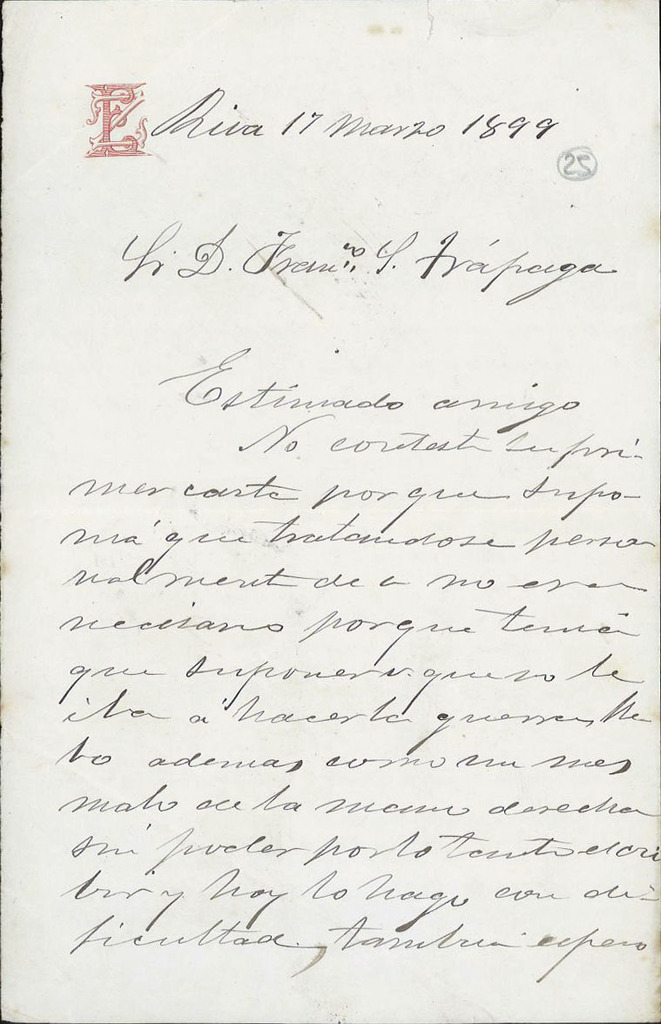 EZ
Riva 17 Marzo 1899
25
Sr D. Franco. S. Trápaga
Estimado amigo
No contesté su pri-
mer carta porque supo-
niá que tratandose perso
nalmente de v. no era
necesario porque teniá
que suponer v. que no le
iba á hacer la guerra, lle
bo ademas como un mes
malo de la mano derecha
sin poder por lo tanto escri
bir y hoy lo hago con di-
ficultad, tambien espero